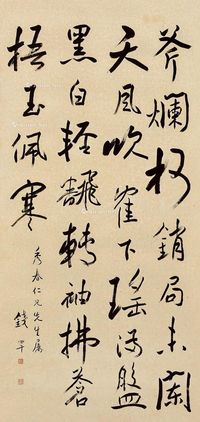 斧爛柯銷局未闌
天風吹雀下瑤海盤
黑白輕翻轉袖拂蒼
梧玉佩寒
秀春仁兄先生屬
錢